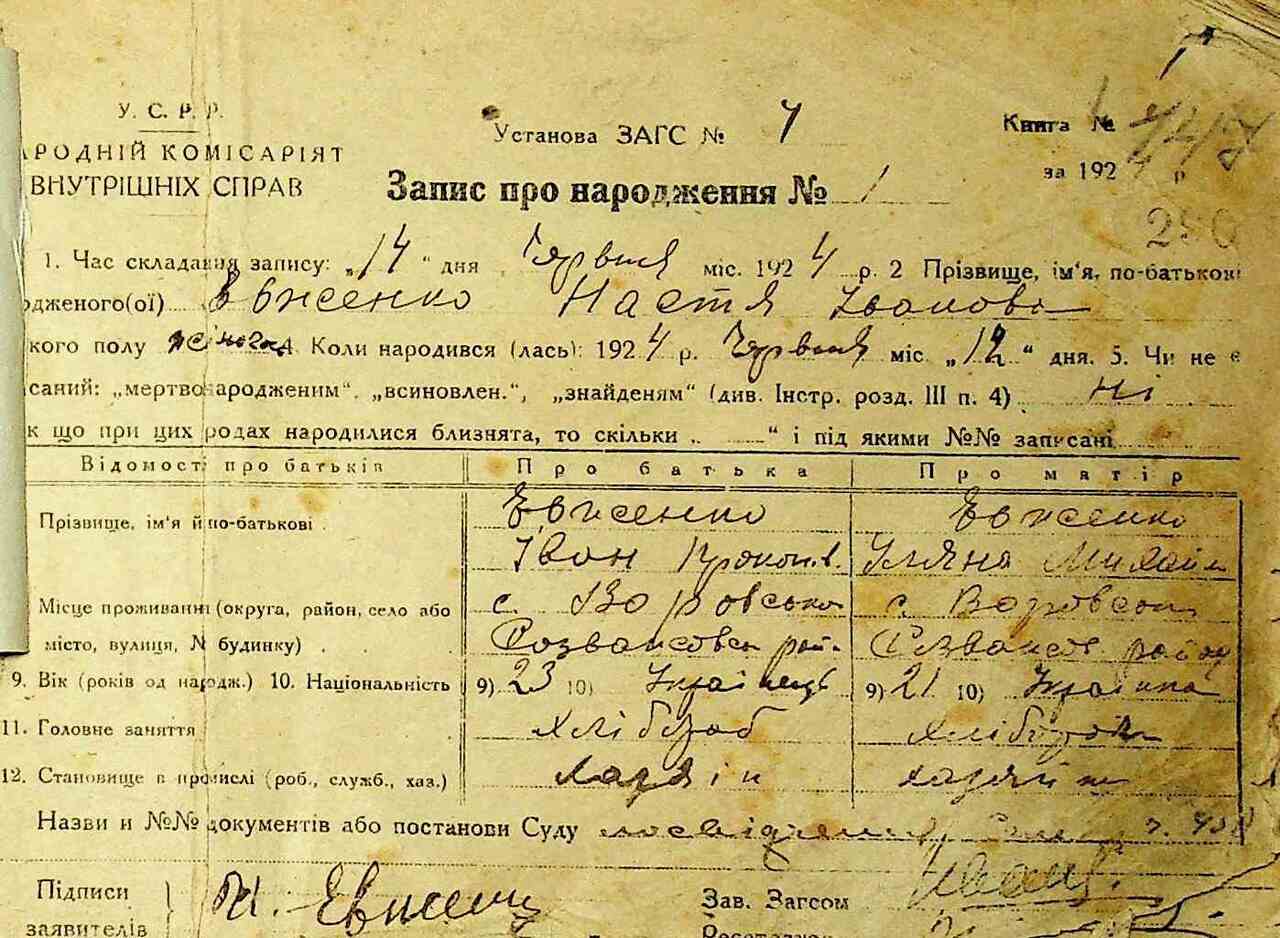 У. С. Р. Р.
Установа ЗАГС № 7
Книга №
РОДНІЙ КОМІСАРІЯТ
за 1924 р
ВНУТРІШНІХ СПРАВ
Запис про народження № 1
290
1. Час складання запису: „14 “ дня Червня міс. 1924 р. 2 Прізвище, ім'я, по-батькові
одженого(ої) Евженко Настя Іванова
кого полу жіночА Коли народився (лась): 1924 р. Червня міс. „12 “ дня. 5. Чи не є
саний: „мертвонародженим“. „всиновлен.“, „знайденям“ (див. Інстр. розд. III п. 4) Ні
к що при цих родах народилися близнята, то скільки „ “ і під якими №№ записані
Відомості про батьків Про батька Про матір
Прізвище, ім'я й по-батькові . Евженко Евженко
Іван Прокоп. Уляна Михайл
Місце проживання (округа, район, село або с. с.
місто, вулиця, № будинку) . . рай. район
9. Вік (років од нар​одж.) 10. Національність 9) 23 10) Українець 9) 21 10) Українка
11. Головне заняття Хлібороб Хлібороб
12. Становище в промислі (роб., служб., хаз.) Хазяїн хазяїн
Назви и №№ документів або постанови Суду
Підписи
заявителів
И. Евженко
Зав. Загсом